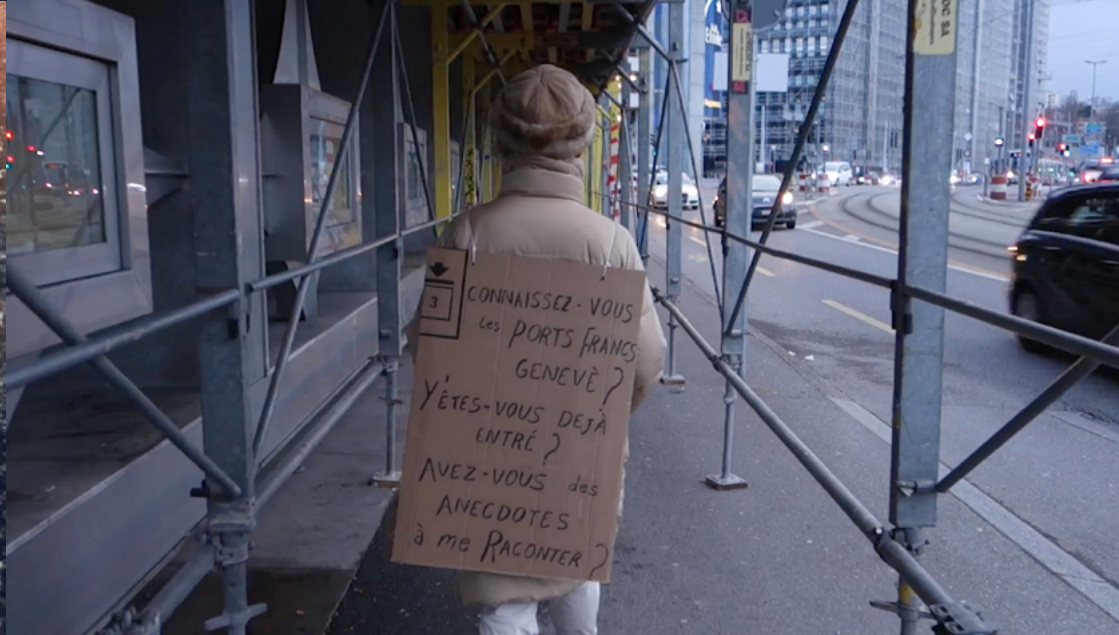 3
CONNAISSEZ-VOUS
les PORTS FRANCS
GENEVÈ ?
Y'ÊTES-VOUS DEJÀ
ENTRÉ ?
AVEZ-VOUS des
ANECDOTES
à me RACONTER ?
OC SA